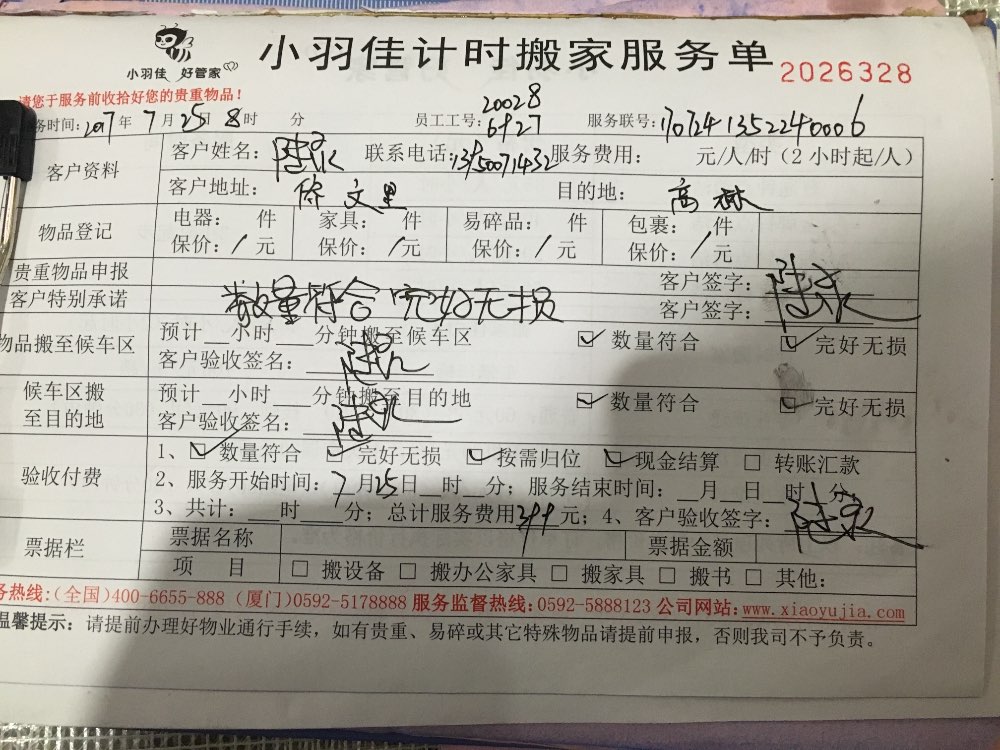 小羽佳 好管家
小羽佳计时搬家服务单
2026328
请您于服务前收拾好您的贵重物品！
务时间：2017年 7月25日 8时 分 员工工号：20028 6927 服务联号：1707241352240006
客户资料 客户姓名： 联系电话：13950071432 服务费用： 元/人/时（2小时起/人）
客户地址： 文里 目的地：高林
物品登记 电器： 件 家具： 件 易碎品： 件 包裹： 件
保价：/元 保价：/元 保价：/元 保价：/元
贵重物品申报 客户签字：
客户特别承诺 数量符合 完好无损 客户签字：
物品搬至候车区 预计__小时___分钟搬至候车区 ☑ 数量符合 ☑ 完好无损
客户验收签名：
候车区搬至目的地 预计__小时___分钟搬至目的地 ☑ 数量符合 ☑ 完好无损
客户验收签名：
验收付费 1、☑ 数量符合 ☑ 完好无损 ☑ 按需归位 ☑ 现金结算 □ 转账汇款
2、服务开始时间：7月25日__时__分；服务结束时间：__月__日__时__分。
3、共计：___时___分；总计服务费用399元；4、客户验收签字：
票据栏 票据名称 票据金额
项 目 □ 搬设备 □ 搬办公家具 □ 搬家具 □ 搬书 □ 其他：
务热线：(全国)400-6655-888 (厦门)0592-5178888 服务监督热线：0592-5888123 公司网站：www.xiaoyujia.com
温馨提示：请提前办理好物业通行手续，如有贵重、易碎或其它特殊物品请提前申报，否则我司不予负责。